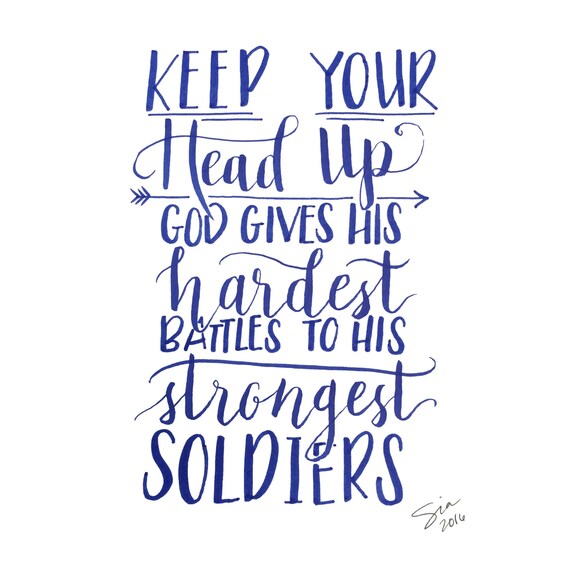 KEEP YOUR
Head Up
GOD GIVES HIS
hardest
BATTLES TO HIS
strongest
SOLDIERS
Sia
2016